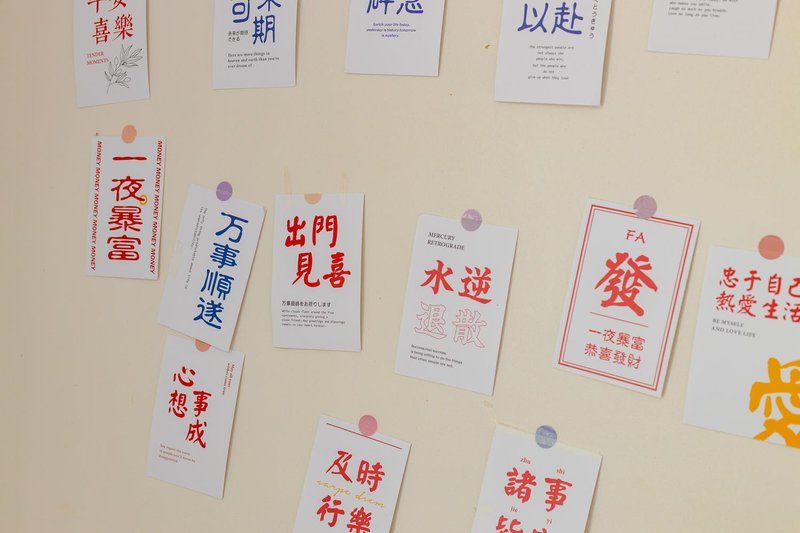 喜樂
TENDER
MOMENTS
期
未來が期待
できる
Here are more things in
heaven and earth than you're
ever dream of
Enrich your life today,
yesterday is history.tomorrow
is mystery.
以赴
The strongest people are
not always the
people who win,
but the people who
do not
give up when they lose
Laugh as much as you breathe
Love as long as you live.
MONEY MONEY MONEY MONEY MONEY
一夜暴富
MONEY MONEY MONEY MONEY MONEY
万事順遂
出門
見喜
万事順遂をお祈りします
MERCURY
RETROGRADE
水逆
退散
FA
發
一夜暴富
恭喜發財
忠于自己
熱愛生活
BE MYSELF
AND LOVE LIFE
愛
心想
事成
及時
carpe diem
行樂
zhu shi
諸事
jie yi